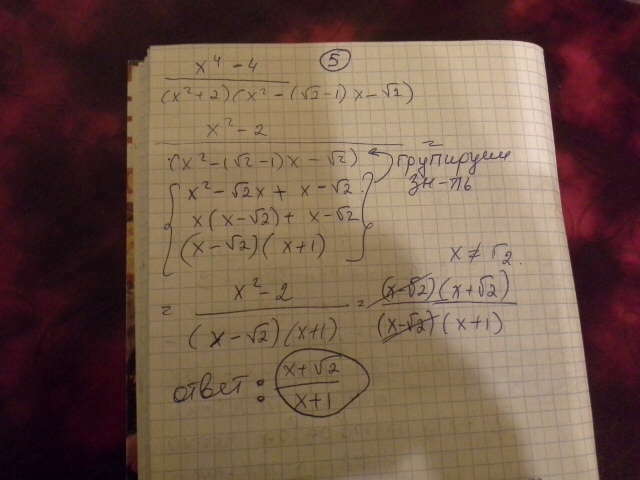 5
x⁴ - 4
(x² + 2)(x² - (√2 - 1)x - √2)
x² - 2 =
(x² - (√2 - 1)x - √2) групируем
x² - √2x + x - √2 зн-ль
x(x - √2) + x - √2
(x - √2)(x + 1)
x ≠ √2.
= x² - 2 = (x - √2)(x + √2)
(x - √2)(x + 1) (x - √2)(x + 1)
ответ: x + √2
x + 1